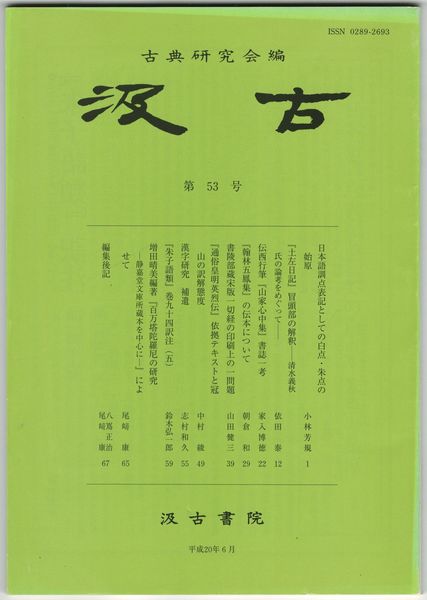 ISSN 0289-2693
古典研究会編
汲古
第 53 号
日本語調点表記としての白点・朱点の
始原 小林芳規 1
『土左日記』冒頭部の解釈――清水義秋
氏の論考をめぐって―― 依田 泰 12
伝西行筆『山家心中集』書誌一考 家入博徳 22
『翰林五鳳集』の伝本について 朝倉 和 29
書陵部蔵宋版一切経の印刷上の一問題 山田健三 39
『通俗皇明英烈伝』依拠テキストと冠
山の訳解態度 中村 綾 49
漢字研究 補遺 志村和久 55
『朱子語類』巻九十四訳注（五） 鈴木弘一郎 59
増田晴美編著『百万塔陀羅尼の研究
―静嘉堂文庫所蔵本を中心に―』によ
せて 尾﨑 康 65
編集後記 八嶌正治
尾﨑 康 67
汲古書院
平成20年6月